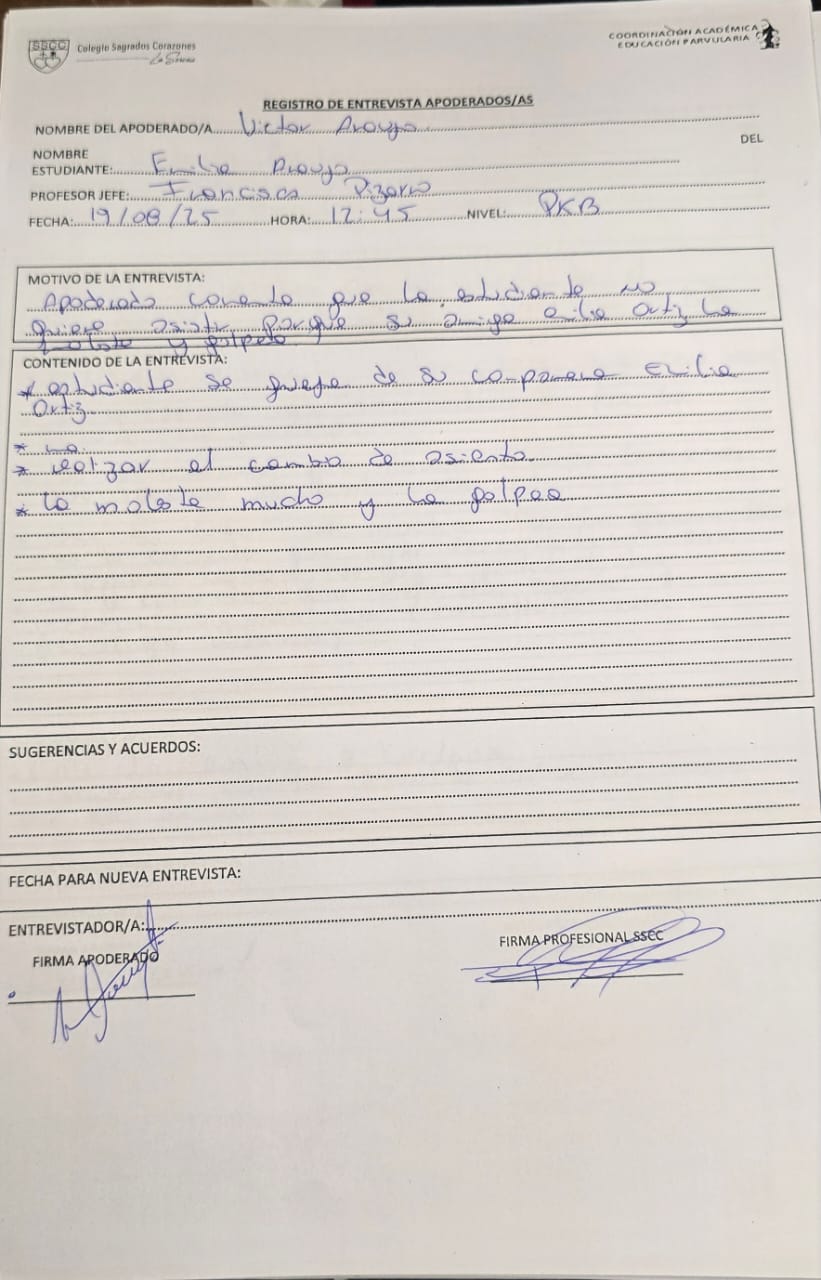 SSCC
Colegio Sagrados Corazones
La Serena
COORDINACIÓN ACADÉMICA
EDUCACIÓN PARVULARIA
REGISTRO DE ENTREVISTA APODERADOS/AS
NOMBRE DEL APODERADO/A Victor Araya
DEL
NOMBRE
ESTUDIANTE: Emilia Araya
PROFESOR JEFE: Francisca Pizarro
FECHA: 19/08/25 HORA: 12:45 NIVEL: PKB
MOTIVO DE LA ENTREVISTA:
Apoderado comenta que la estudiante no
quiere asistir porque su amiga emilia Ortiz la
molesta y golpea
CONTENIDO DE LA ENTREVISTA:
* estudiante se queja de su compañera Emilia
Ortiz
*
* realizar el cambio de asiento
* la molesta mucho y la golpea
SUGERENCIAS Y ACUERDOS:
FECHA PARA NUEVA ENTREVISTA:
ENTREVISTADOR/A:
FIRMA APODERADO
FIRMA PROFESIONAL SSCC